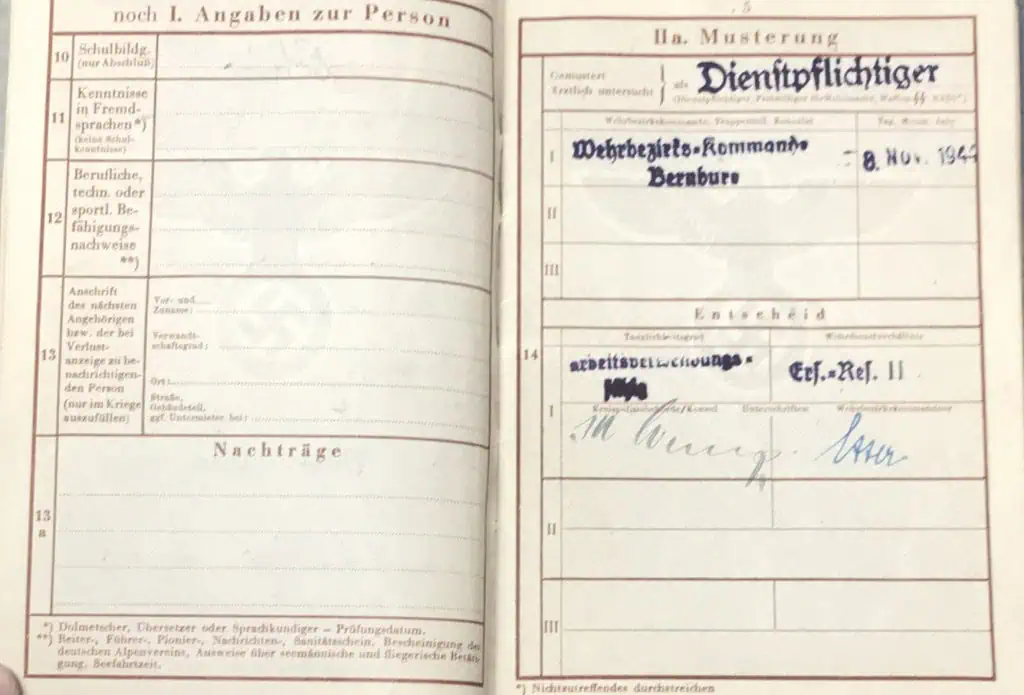 noch I. Angaben zur Person
10 Schulbildg.
(nur Abschluß)
11 Kenntnisse
in Fremd-
sprachen*)
(keine Schul-
kenntnisse)
12 Berufliche,
techn. oder
sportl. Be-
fähigungs-
nachweise
**)
13 Anschrift
des nächsten
Angehörigen
bzw. der bei
Verlust-
anzeige zu be-
nachrichtigen-
den Person
(nur im Kriege
auszufüllen)
Vor- und
Zuname:
Verwandt-
schaftsgrad:
Ort:
Straße,
Gebäudeteil,
ggf. Untermieter bei:
Nachträge
13
a
*) Dolmetscher, Übersetzer oder Sprachkundiger – Prüfungsdatum.
**) Reiter-, Führer-, Pionier-, Nachrichten-, Sanitätsschein, Bescheinigung des
deutschen Alpenvereins, Ausweise über seemännische und fliegerische Betäti-
gung, Seefahrtzeit.
5
IIa. Musterung
Gemustert
Ärztlich untersucht
als Dienstpflichtiger
I Wehrbezirks-Kommando
Bernburg
8. Nov. 1944
II
III
Entscheid
14
Tauglichkeitsgrad Wehrdienstverhältnis
arbeitsverwendungs-
Ers.-Res. II
I
Unterschriften Wehrbezirkskommandeur
II
III
*) Nichtzutreffendes durchstreichen